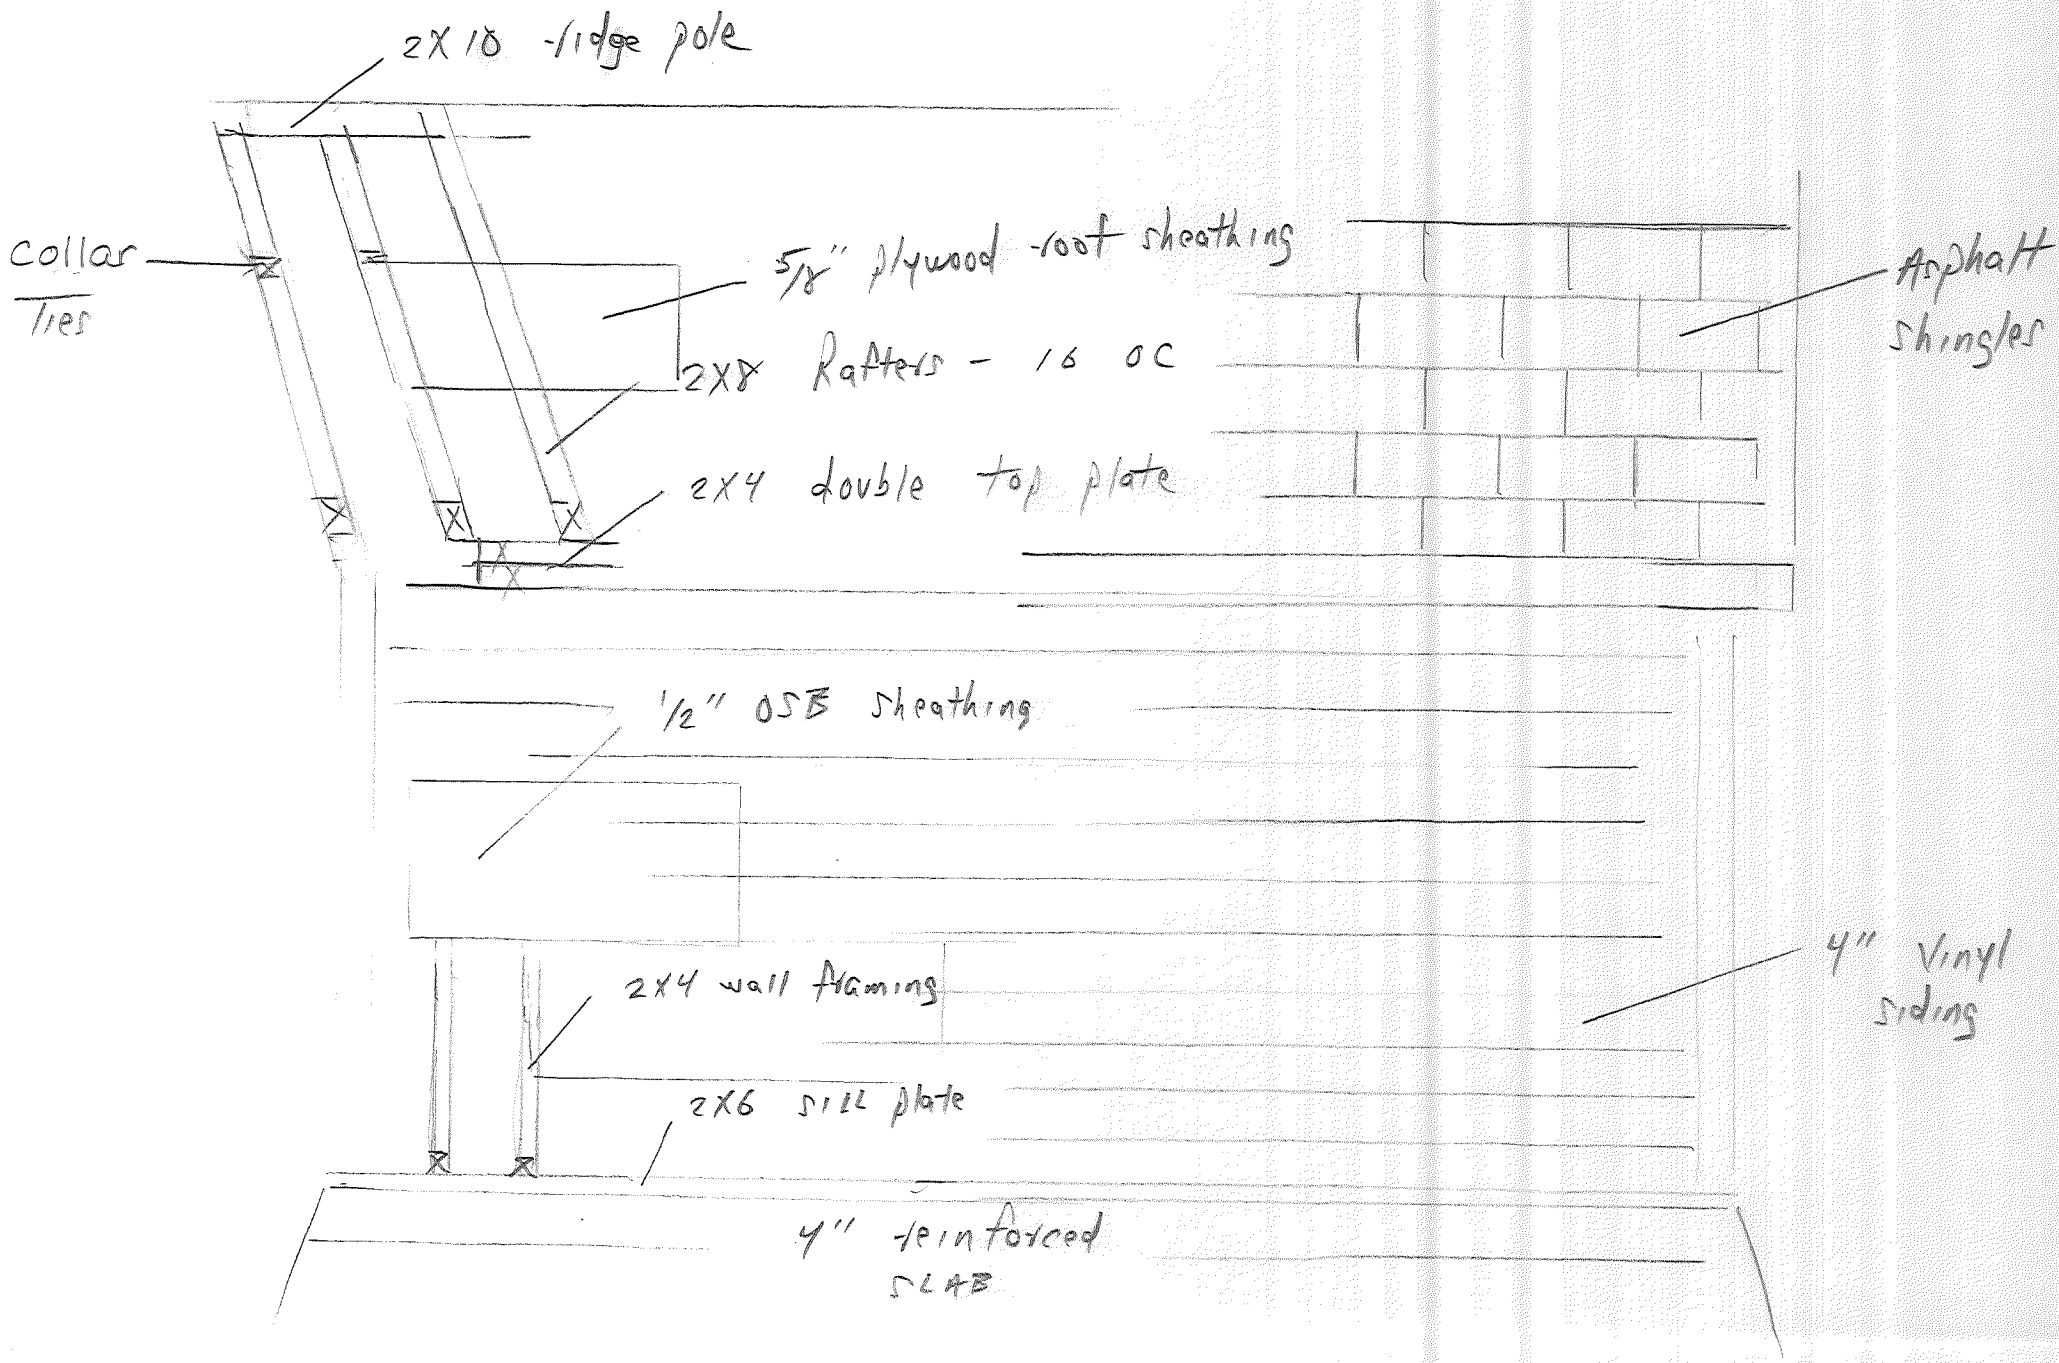 2X10 ridge pole
collar
Ties
5/8" plywood roof sheathing
Asphalt
shingles
2X8 Rafters - 16 OC
2X4 double top plate
1/2" OSB sheathing
2X4 wall framing
4" vinyl
siding
2X6 SILL plate
4" reinforced
SLAB